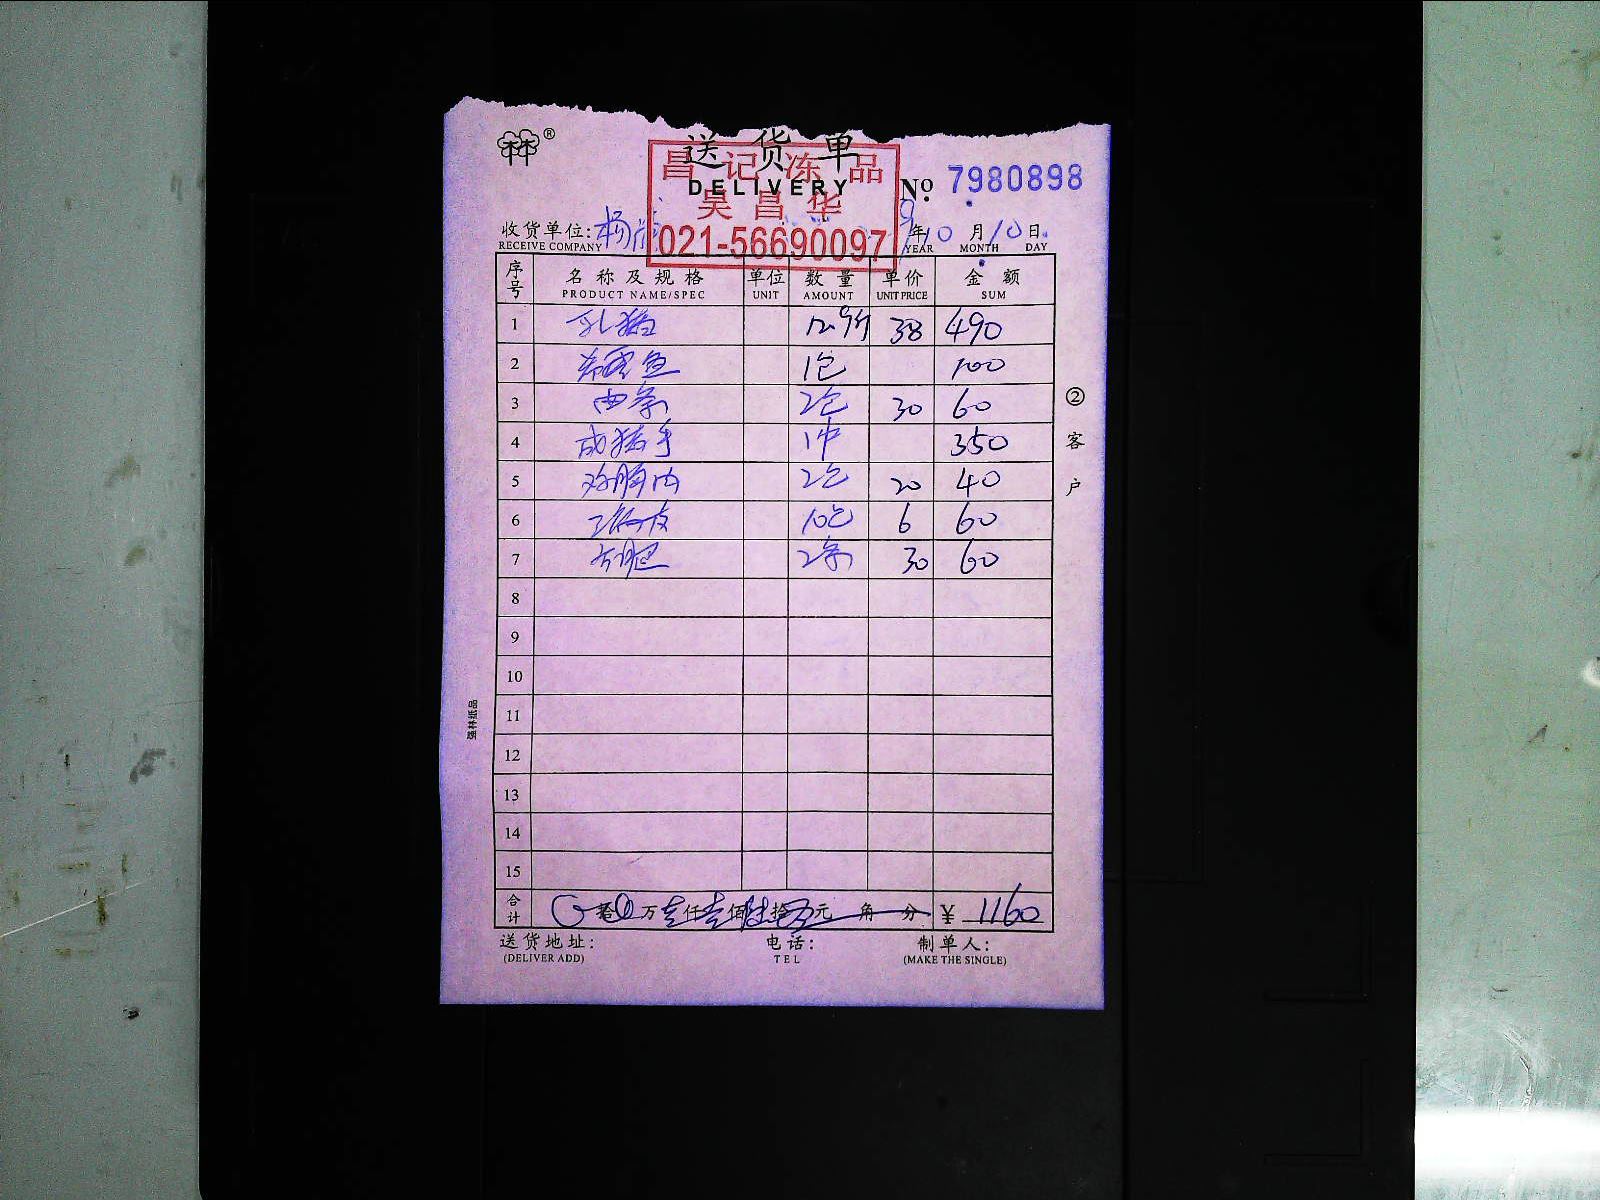 林®
送货单
DELIVERY
昌记冻品
吴昌华
021-56690097
No. 7980898
收货单位: 杨
RECEIVE COMPANY
9年10月10日
YEAR MONTH DAY
序号 名称及规格 单位 数量 单价 金额
PRODUCT NAME/SPEC UNIT AMOUNT UNIT PRICE SUM
1 乳猪 12.9斤 38 490
2 希零鱼 1包 100
3 肉条 2包 30 60
4 成猪手 1件 350
5 鸡胸肉 2包 20 40
6 10包 6 60
7 2条 30 60
8
9
10
11
12
13
14
15
合计 0拾0万壹仟壹佰陆拾元角分 ¥ 1160
②客户
强林纸品
送货地址: 电话: 制单人:
(DELIVER ADD) TEL (MAKE THE SINGLE)